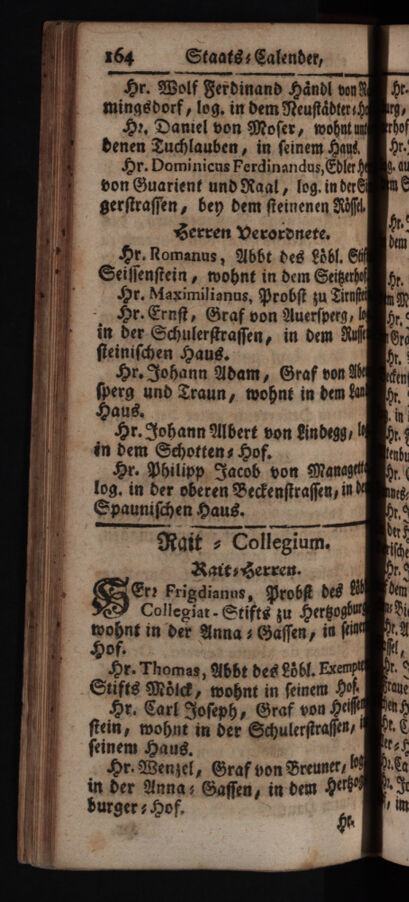 164 Staats-Calender,
Hr. Wolf Ferdinand Händl von
mingsdorf, log. in dem Neustädter-
Hr. Daniel von Moser, wohnt
denen Tuchlauben, in seinem Haus.
Hr. Dominicus Ferdinandus, Edler
von Guarient und Raal, log. in der
gerstrassen, bey dem steinenen Rössel.
Herren Verordnete.
Hr. Romanus, Abbt des Löbl.
Seissenstein, wohnt in dem
Hr. Maximilianus, Probst zu
Hr. Ernst, Graf von Auersperg,
in der Schulerstrassen, in dem
steinischen Haus.
Hr. Johann Adam, Graf von
sperg und Traun, wohnt in dem
Haus.
Hr. Johann Albert von Lindegg,
in dem Schotten-Hof.
Hr. Philipp Jacob von
log. in der oberen Beckenstrassen, in
Spaunischen Haus.
Rait-Collegium.
Rait-Herren.
HErr Frigdianus, Probst des
Collegiat-Stifts zu
wohnt in der Anna-Gassen, in
Hof.
Hr. Thomas, Abbt des Löbl.
Stifts Mölck, wohnt in seinem Hof.
Hr. Carl Joseph, Graf von
stein, wohnt in der Schulerstrassen,
seinem Haus.
Hr. Wenzel, Graf von Breuner,
in der Anna-Gassen, in dem
burger-Hof.
Hr.